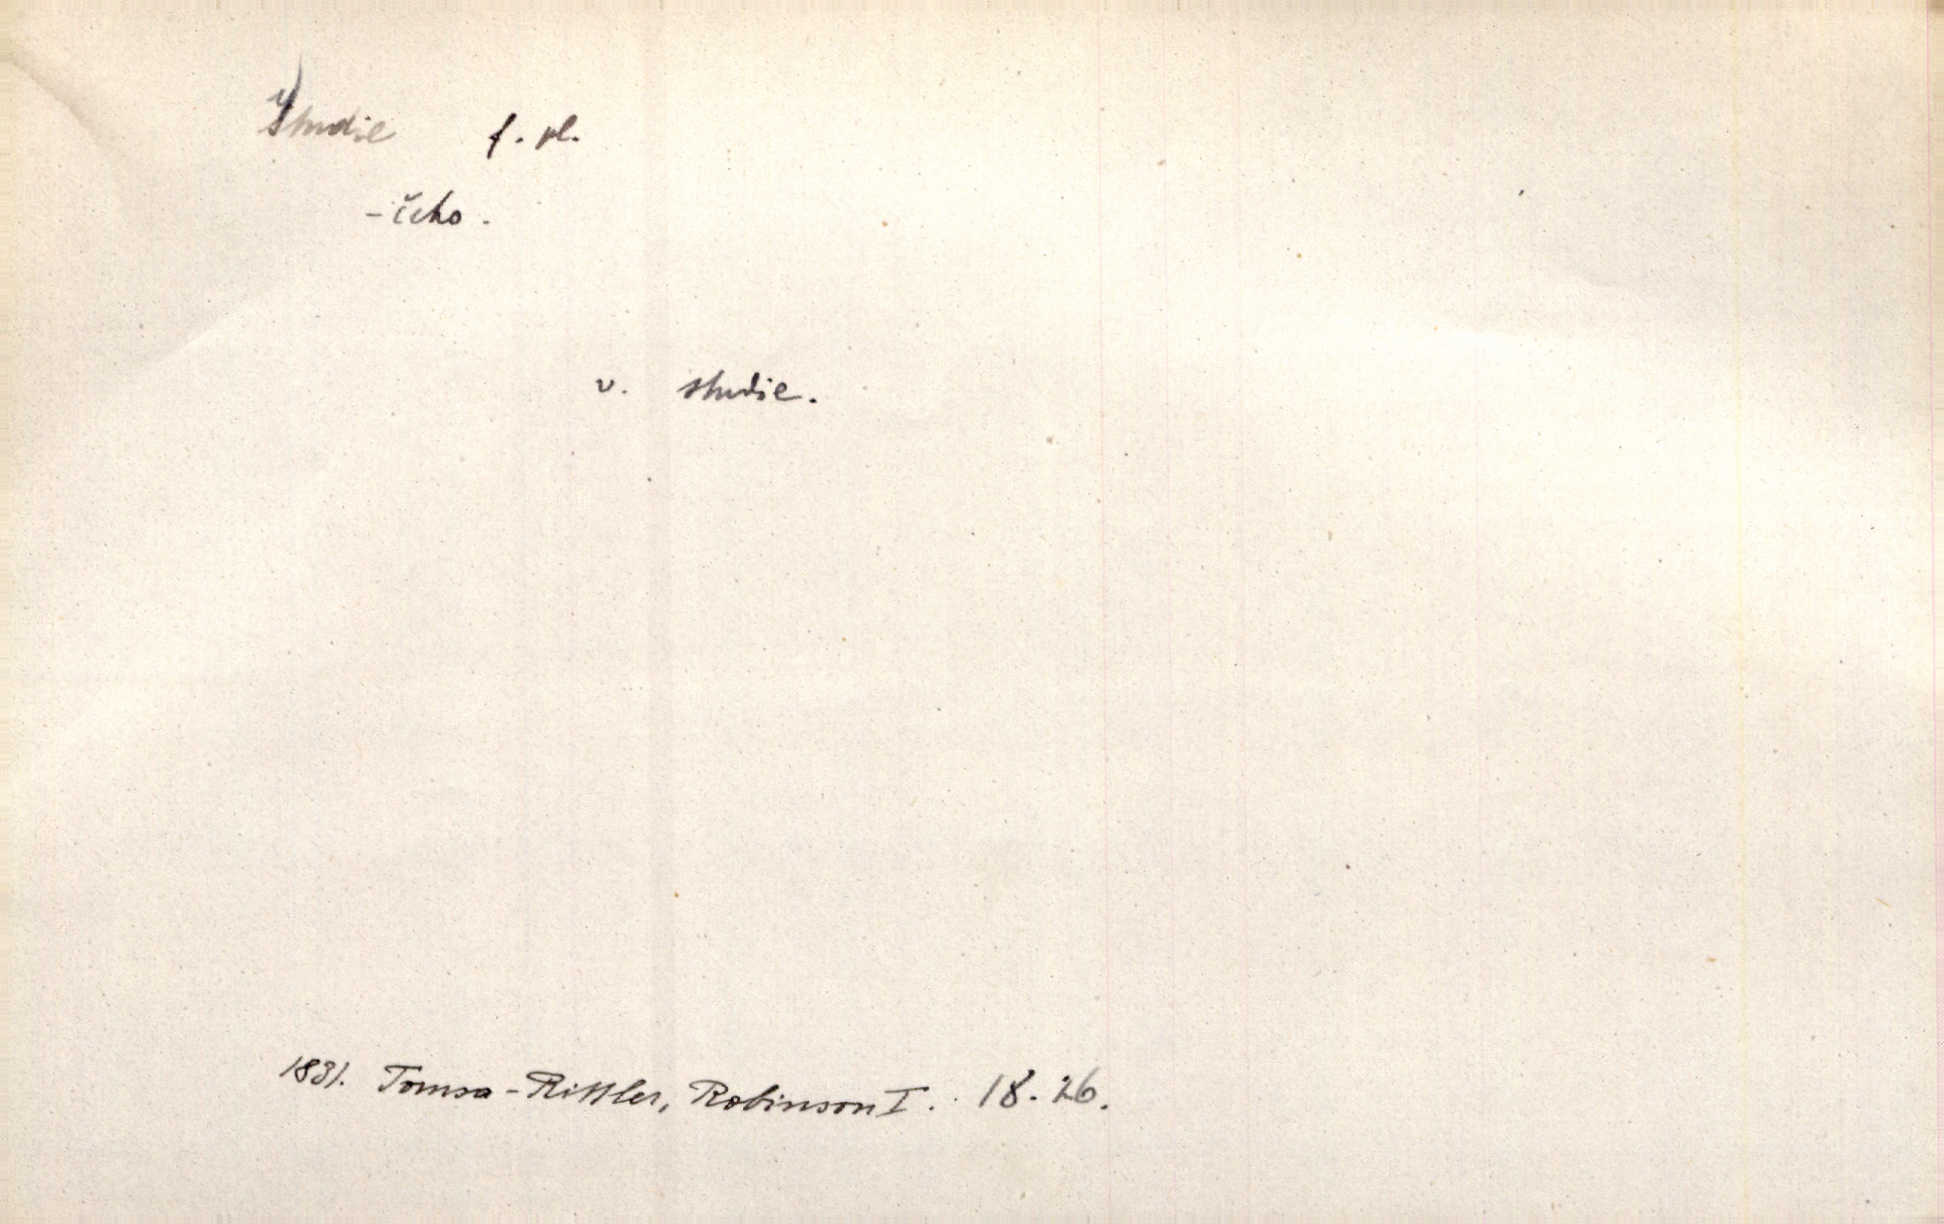 Študie f. pl.
- čeho.
v. studie.
1831. Tomsa-Rittler, Robinson I. 18. 26.